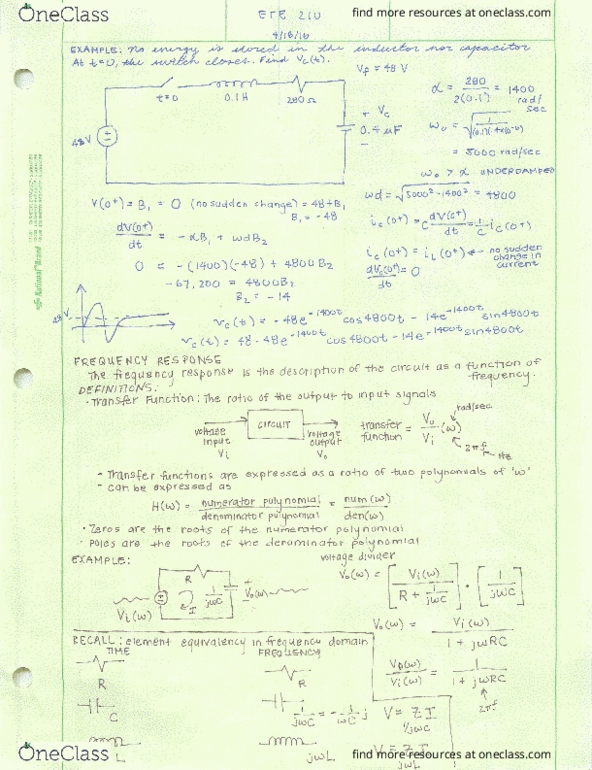 OneClass
find more resources at oneclass.com
ETE 210
4/16/16
EXAMPLE: No energy is stored in the inductor nor capacitor
At t=0, the switch closes. Find Vc(t).
Vf = 48 V
t=0
0.1H
280Ω
48V
+ Vc
0.4μF
−
α = 280 / 2(0.1) = 1400 rad/sec
ω₀ = √(1/(0.1)(.4×10⁻⁶))
= 5000 rad/sec
ω₀ > α UNDERDAMPED
ωd = √(5000² - 1400²) = 4800
V(0⁺) = B₁ = 0 (no sudden change) = 48 + B₁
B₁ = -48
dV(0⁺)/dt = -αB₁ + ωdB₂
0 = -(1400)(-48) + 4800B₂
-67,200 = 4800B₂
B₂ = -14
ic(0⁺) = C dV(0⁺)/dt = 1/C ic(0⁺)
ic(0⁺) = iL(0⁺) ← no sudden change in current
dVc(0⁺)/dt = 0
48V
vc(t) = -48e^-1400t cos4800t - 14e^-1400t sin4800t
vc(t) = 48 - 48e^-1400t cos4800t - 14e^-1400t sin4800t
FREQUENCY RESPONSE
The frequency response is the description of the circuit as a function of frequency.
DEFINITIONS:
· Transfer Function: The ratio of the output to input signals
voltage input Vi
CIRCUIT
voltage output Vo
transfer function = Vo/Vi (ω)
rad/sec
2πf
Hz
- Transfer functions are expressed as a ratio of two polynomials of 'ω'
- can be expressed as
H(ω) = numerator polynomial / denominator polynomial = num(ω) / den(ω)
· Zeros are the roots of the numerator polynomial
· Poles are the roots of the denominator polynomial
EXAMPLE:
voltage divider
R
Vi(ω)
I
1/jωC
+
Vo(ω)
Vo(ω) = [Vi(ω) / R + 1/jωC] · [1/jωC]
Vo(ω) = Vi(ω) / 1 + jωRC
Vo(ω)/Vi(ω) = 1 / 1 + jωRC
2πf
RECALL: element equivalency in frequency domain
TIME
FREQUENCY
R
R
C
1/jωC = -1/ωC j
V = ZI
1/jωC
L
jωL
V = ZI
jωL
OneClass
find more resources at oneclass.com